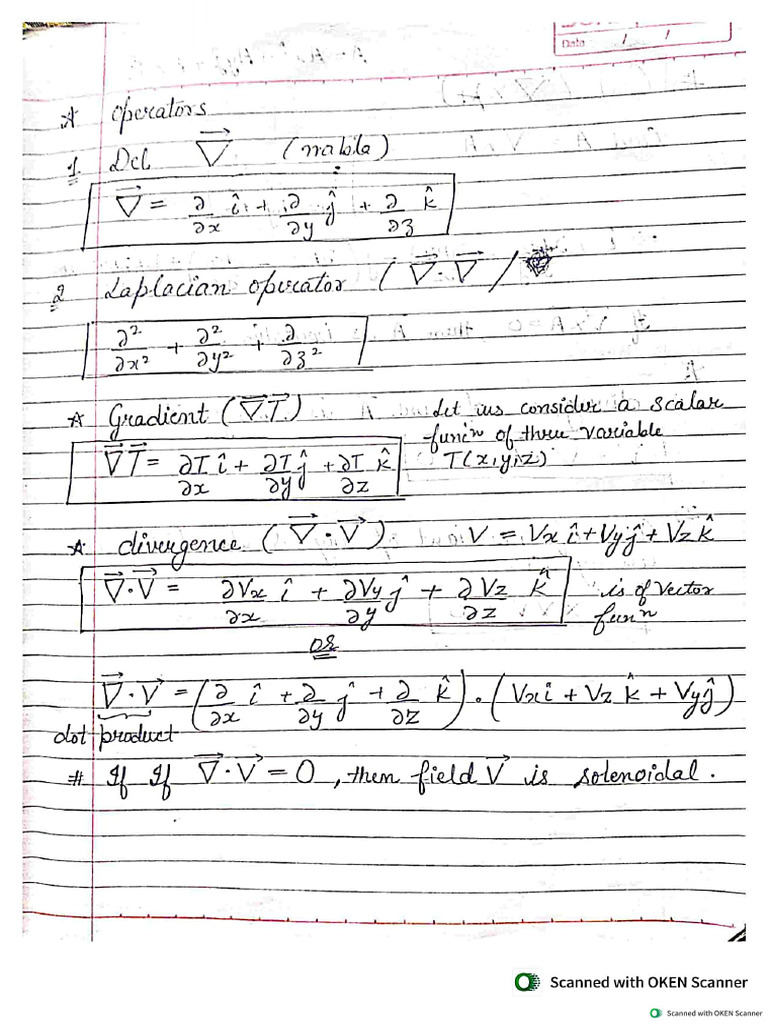 Date / /
☆ Operators
1. Del ∇⃗ (nabla)
∇⃗ = ∂/∂x î + ∂/∂y ĵ + ∂/∂z k̂
2 Laplacian operator (∇⃗·∇⃗ /
∂²/∂x² + ∂²/∂y² + ∂/∂z²
☆ Gradient (∇⃗T⃗) Let us consider a scalar
funcⁿ of three variable
∇⃗T⃗ = ∂T/∂x î + ∂T/∂y ĵ + ∂T/∂z k̂ T(x,y,z)
☆ divergence (∇⃗·V⃗) V = Vx î + Vy ĵ + Vz k̂
∇⃗·V⃗ = ∂Vx/∂x î + ∂Vy/∂y ĵ + ∂Vz/∂z k̂ is of vector
funⁿ
or
∇⃗·V⃗ = (∂/∂x î + ∂/∂y ĵ + ∂/∂z k̂)·(Vx î + Vz k̂ + Vy ĵ)
dot product
# If If ∇⃗·V⃗ = 0, then field V⃗ is solenoidal.
Scanned with OKEN Scanner
Scanned with OKEN Scanner